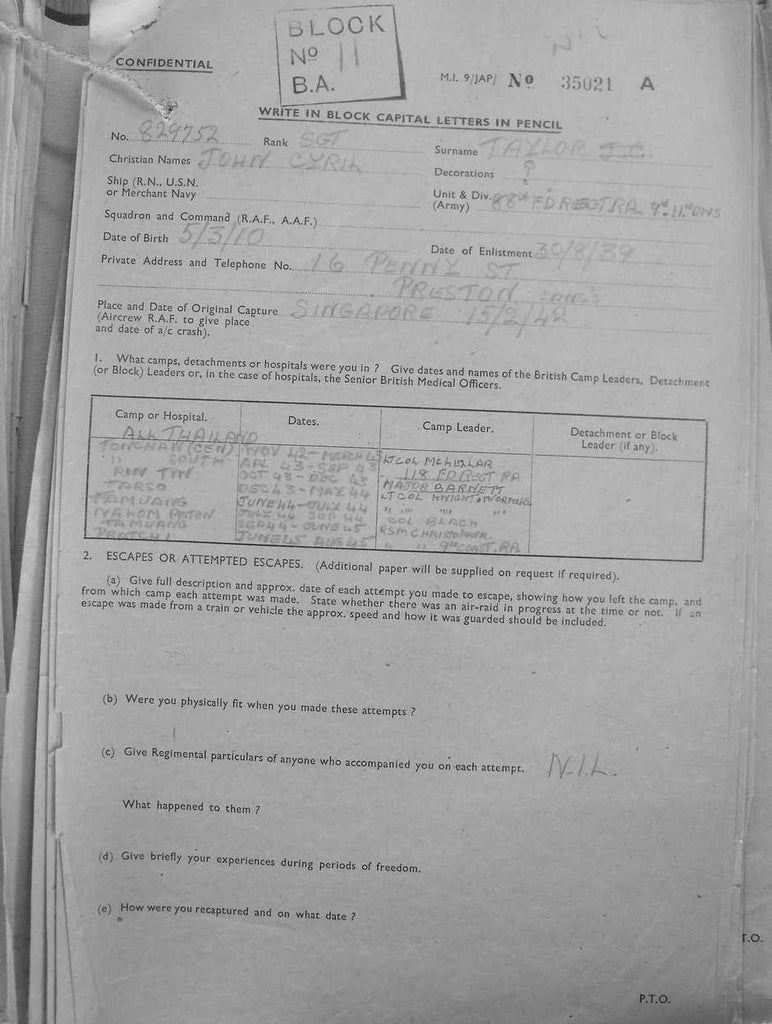 BLOCK
Nº 11
B.A.
NIL
CONFIDENTIAL
M.I. 9/JAP/ Nº 35021 A
WRITE IN BLOCK CAPITAL LETTERS IN PENCIL
No. 829752 Rank SGT Surname TAYLOR J.C.
Christian Names JOHN CYRIL Decorations ?
Ship (R.N., U.S.N.
or Merchant Navy
Unit & Div.
(Army) 88th FD REGT RA 9th 11th DNS
Squadron and Command (R.A.F., A.A.F.)
Date of Birth 5/3/10 Date of Enlistment 30/8/39
Private Address and Telephone No. 16 PENNY ST.
PRESTON LANCS
Place and Date of Original Capture SINGAPORE 15/2/42
(Aircrew R.A.F. to give place
and date of a/c crash).
1. What camps, detachments or hospitals were you in ? Give dates and names of the British Camp Leaders, Detachment
(or Block) Leaders or, in the case of hospitals, the Senior British Medical Officers.
Camp or Hospital. Dates. Camp Leader. Detachment or Block
Leader (if any).
ALL THAILAND
TONCHAN (CEN) NOV 42 - MARCH 43 LT COL
" SOUTH APL 43 - SEP 43 118 FD REGT RA
RIN TIN OCT 43 - DEC 43 MAJOR BARNETT
TARSO DEC 43 - MAY 44 LT COL KNIGHT NORFOLKS
TAMUANG JUNE 44 - JULY 44 " " " "
NAKOM PATON JULY 44 SEP 44 COL BLACK
TAMUANG SEP 44 - JUNE 45 RSM
PRATCHI JUNE 45 AUG 45 " " 9th COAST. RA
2. ESCAPES OR ATTEMPTED ESCAPES. (Additional paper will be supplied on request if required).
(a) Give full description and approx. date of each attempt you made to escape, showing how you left the camp, and
from which camp each attempt was made. State whether there was an air-raid in progress at the time or not. If an
escape was made from a train or vehicle the approx. speed and how it was guarded should be included.
(b) Were you physically fit when you made these attempts ?
(c) Give Regimental particulars of anyone who accompanied you on each attempt. NIL.
What happened to them ?
(d) Give briefly your experiences during periods of freedom.
(e) How were you recaptured and on what date ?
T.O.
P.T.O.